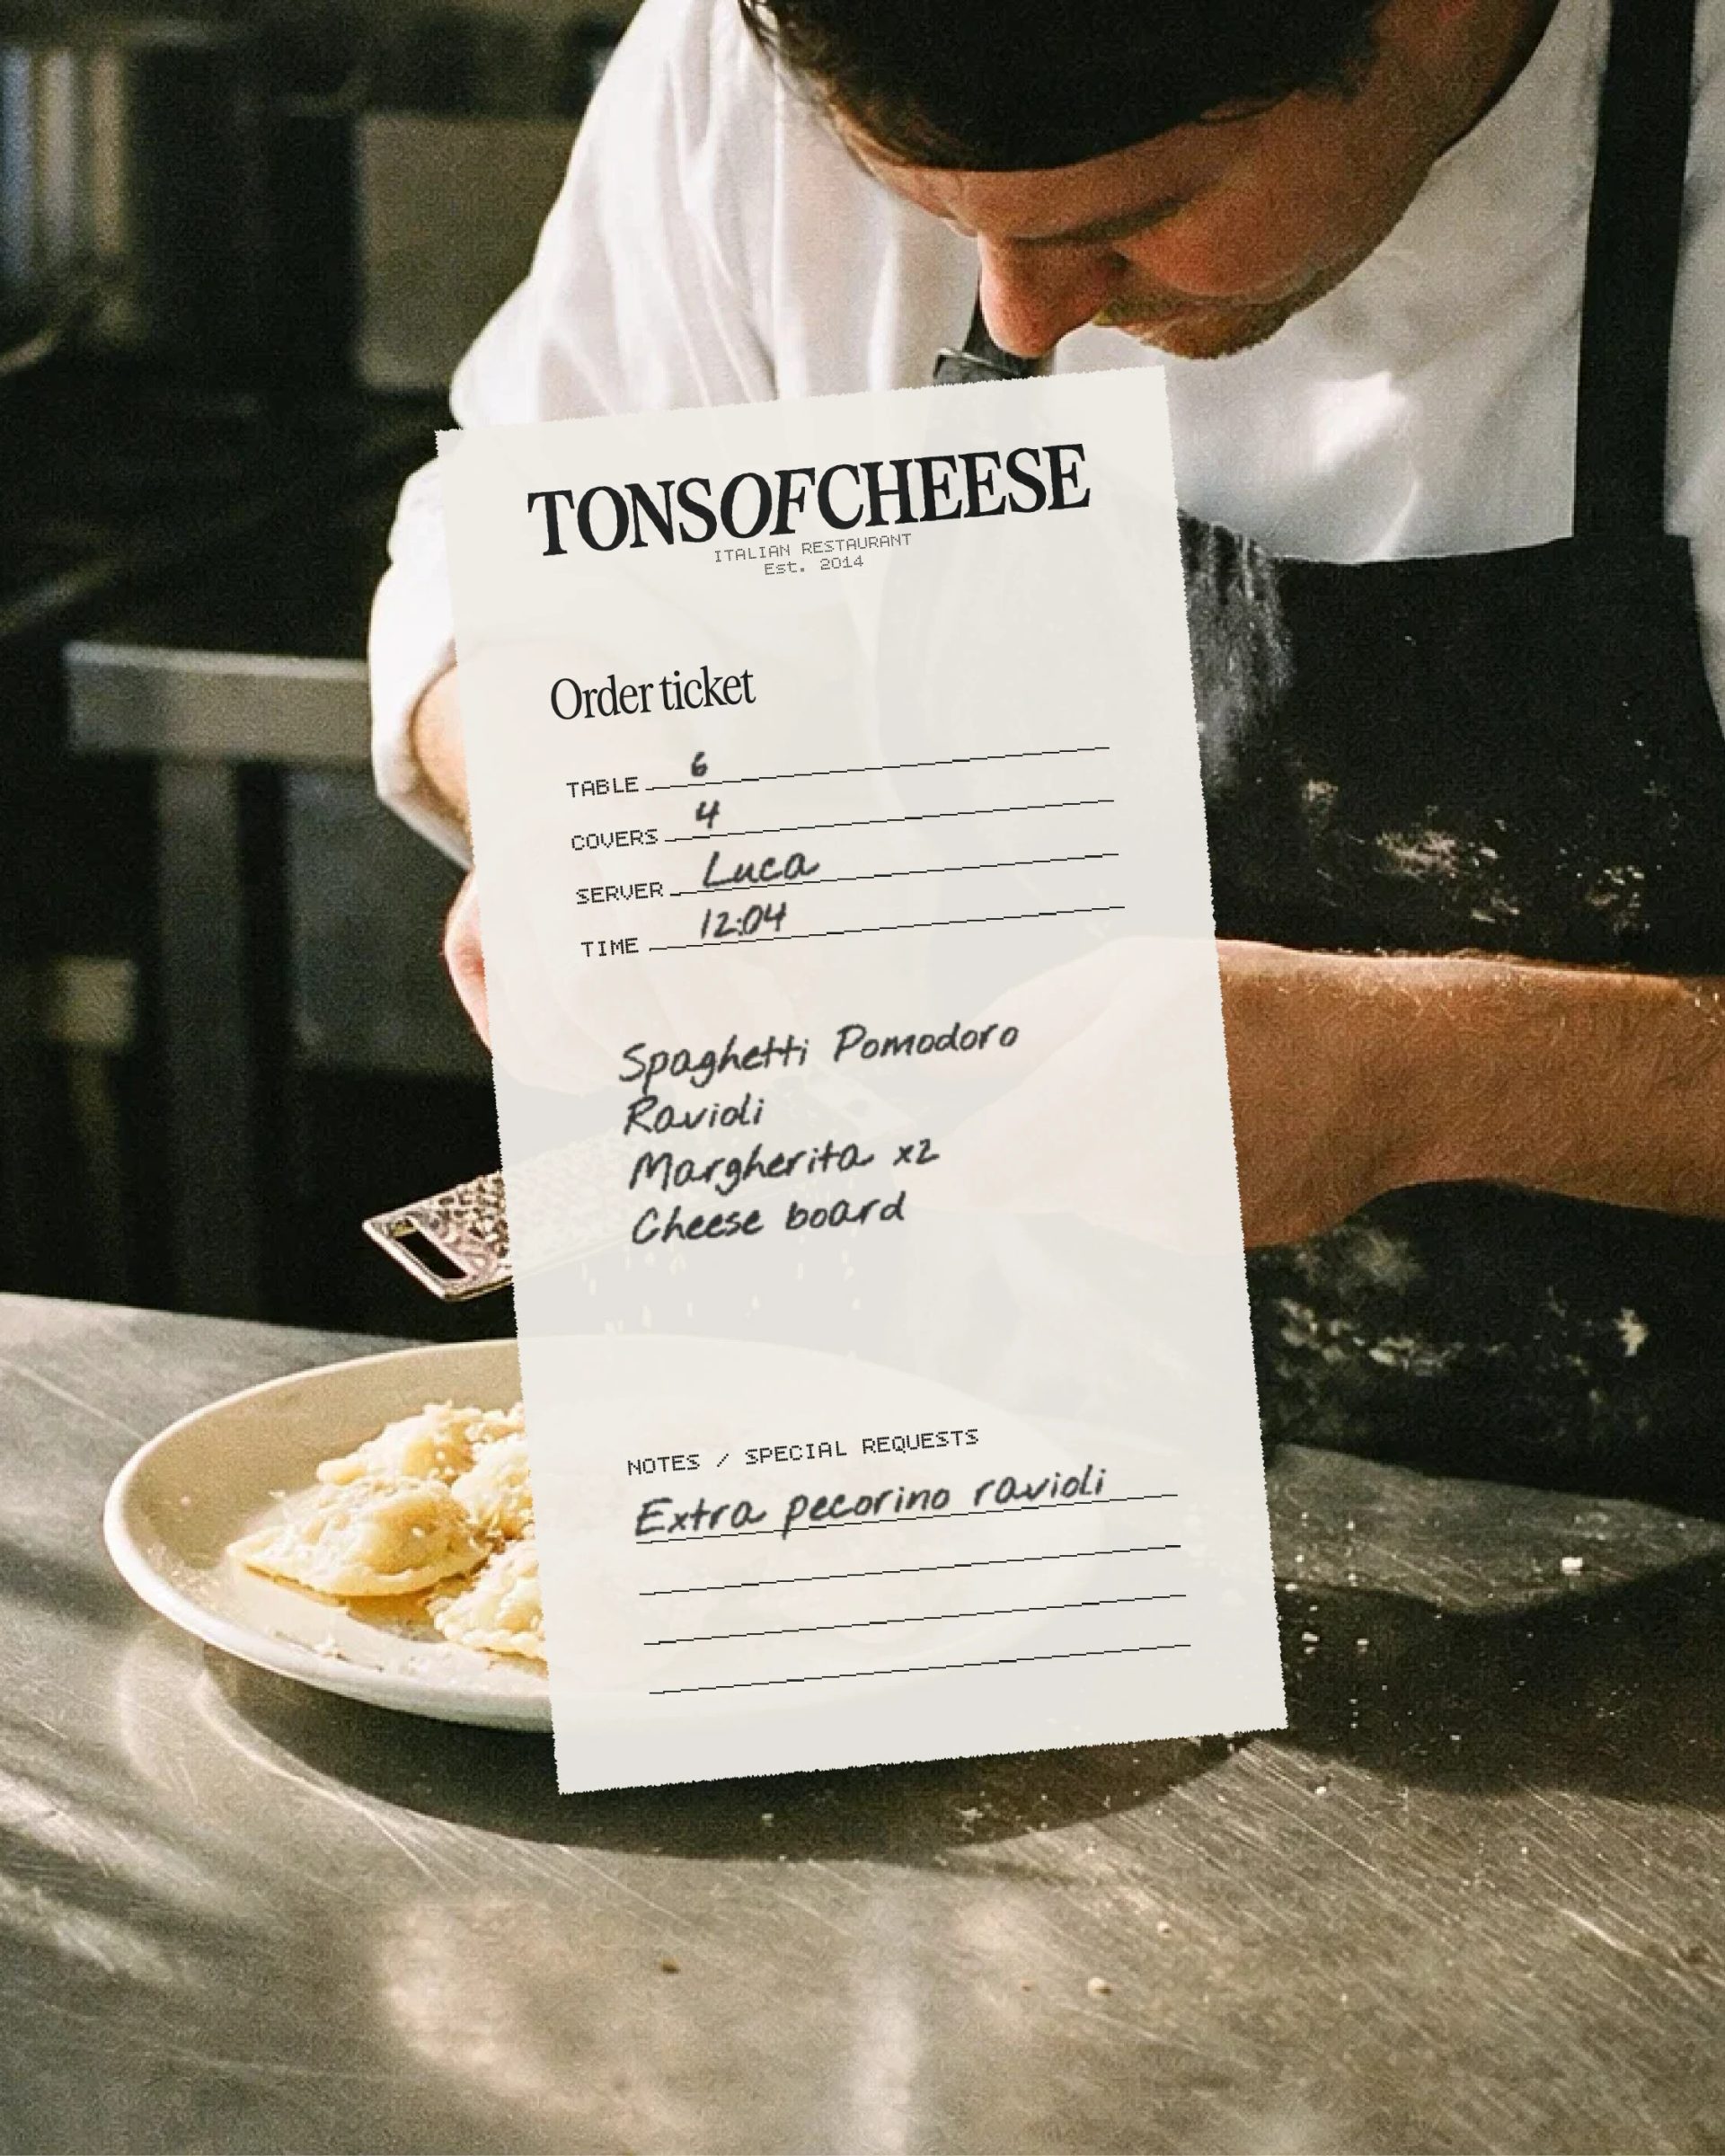 TONSOFCHEESE
ITALIAN RESTAURANT
Est. 2014
Order ticket
TABLE 6
COVERS 4
SERVER Luca
TIME 12:04
Spaghetti Pomodoro
Ravioli
Margherita x2
Cheese board
NOTES / SPECIAL REQUESTS
Extra pecorino ravioli